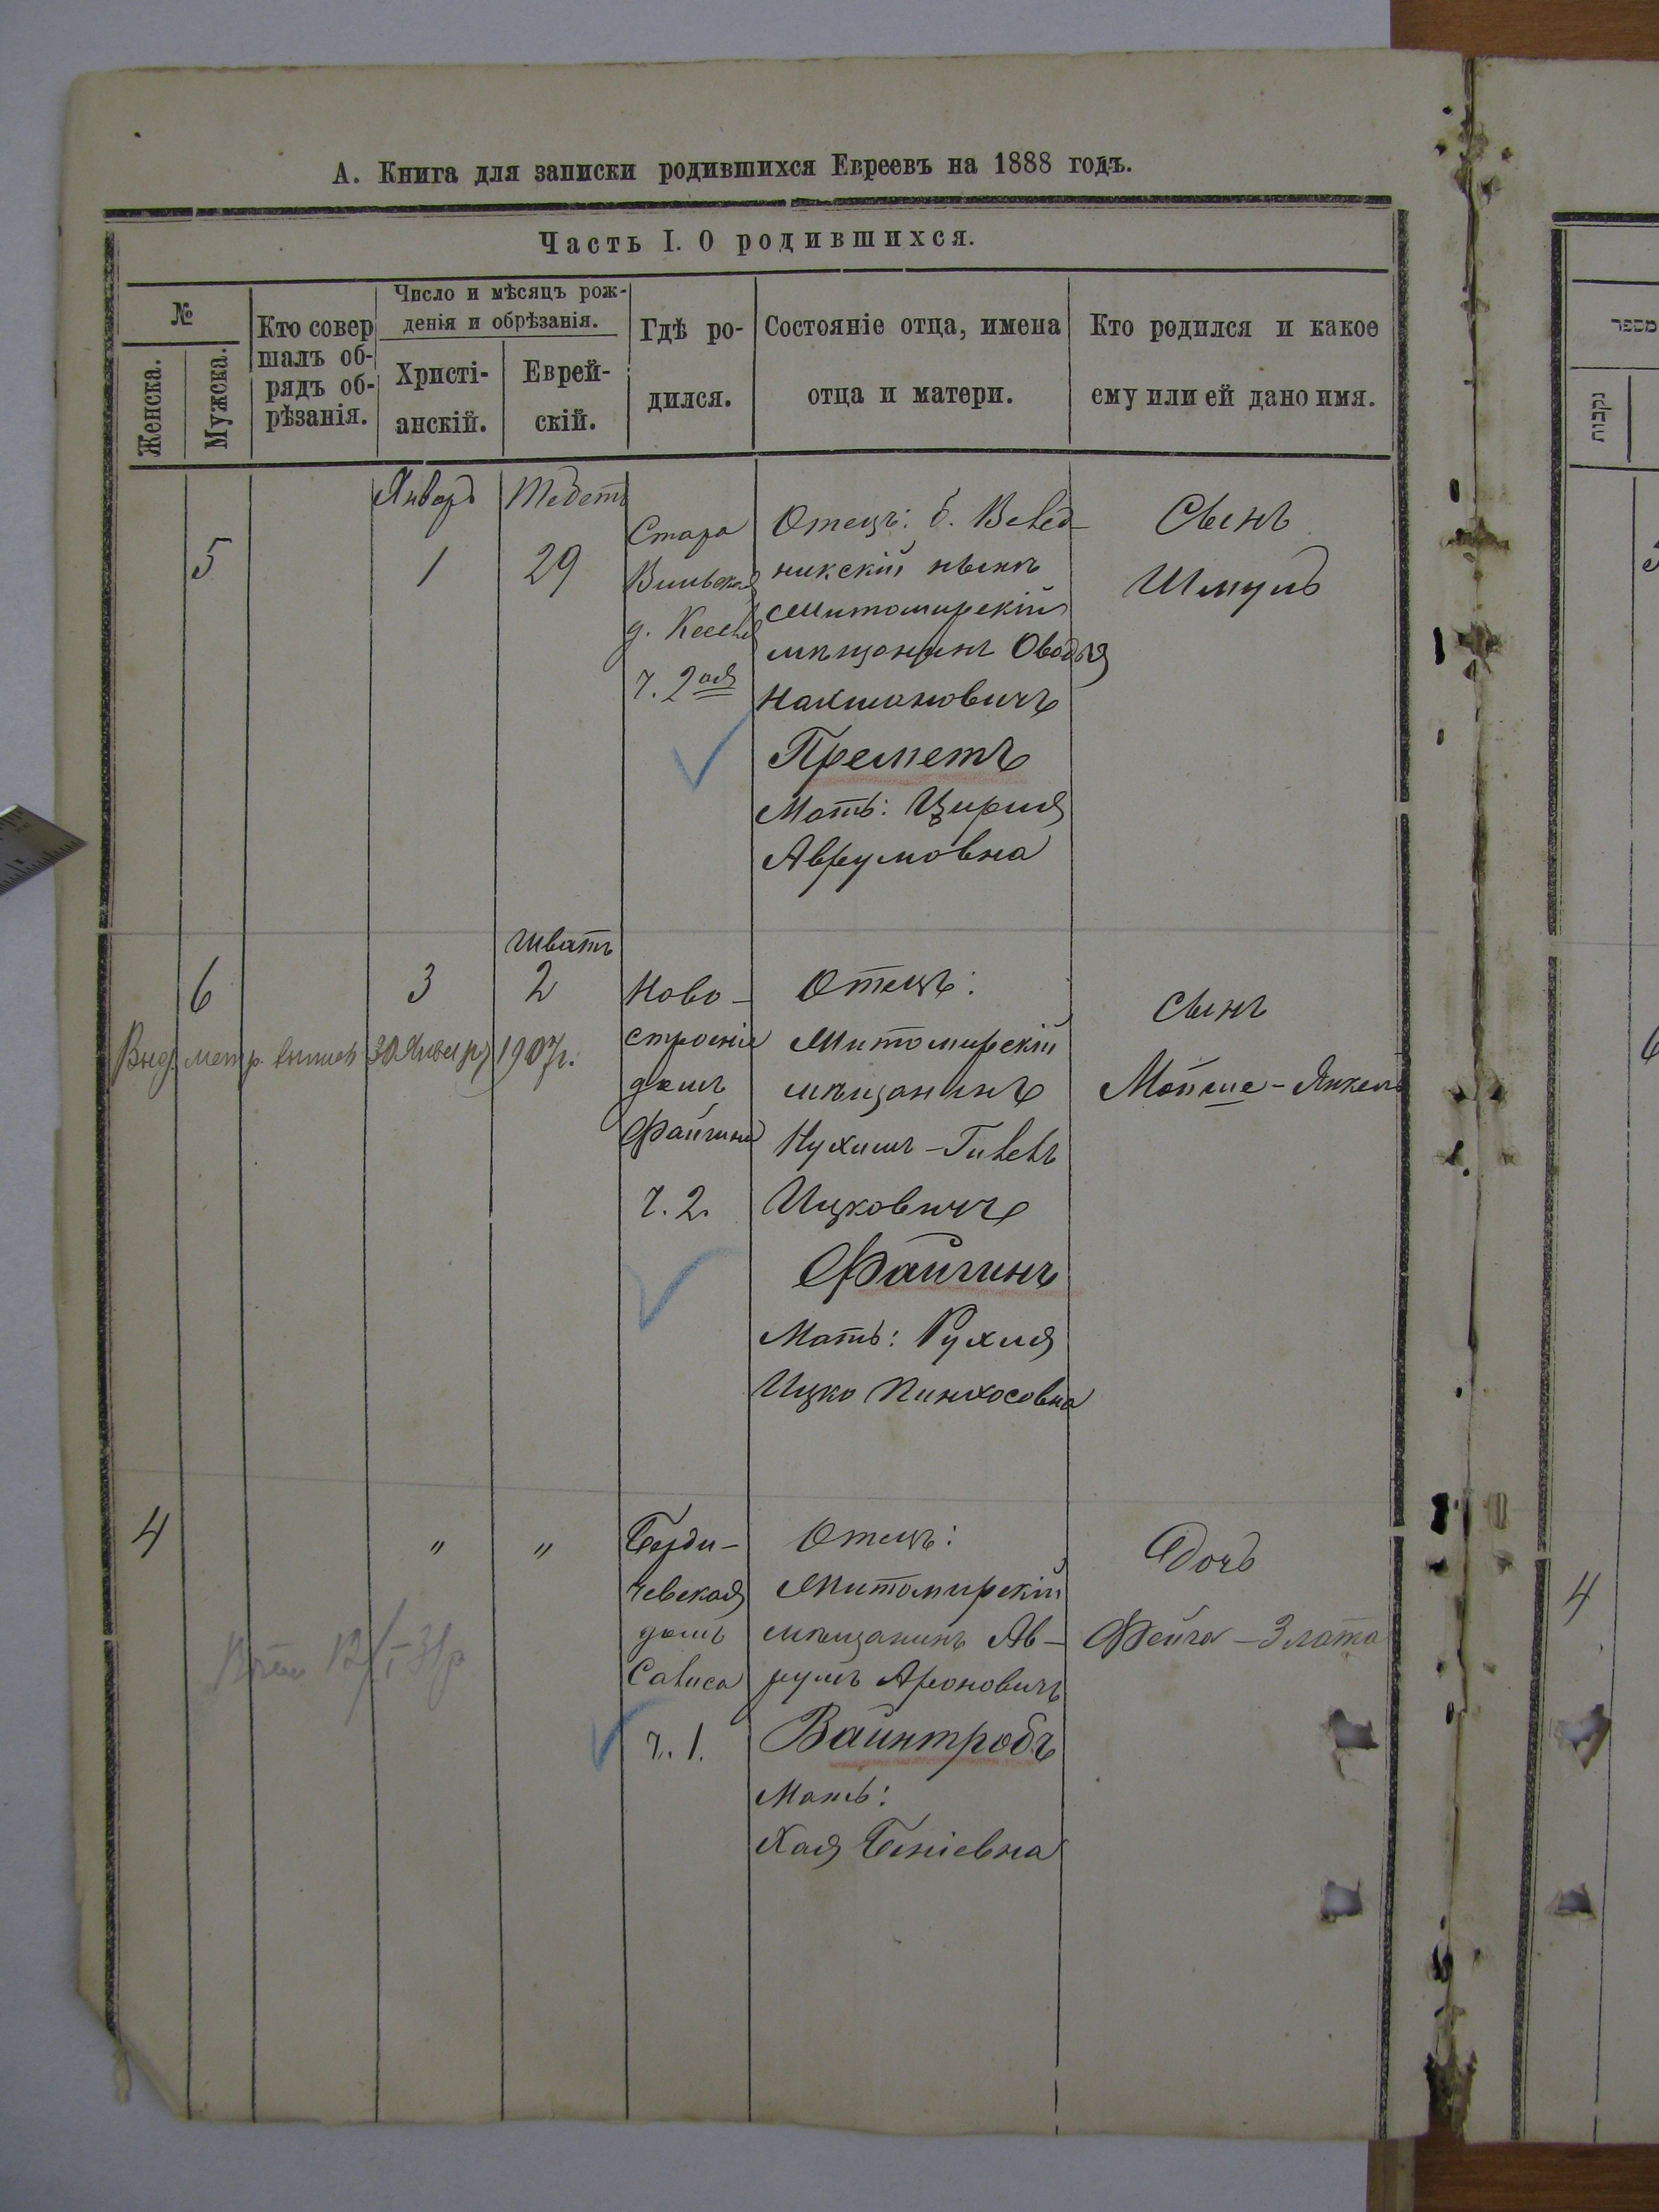 А. Книга для записки родившихся Евреевъ на 1888 годъ.
Часть I. О родившихся.
№
Женска.
Мужска.
Кто совер
шалъ об-
рядъ об-
рѣзанія.
Число и мѣсяцъ рож-
денія и обрѣзанія.
Христі-
анскій.
Еврей-
скій.
Гдѣ ро-
дился.
Состояніе отца, имена
отца и матери.
Кто родился и какое
ему или ей дано имя.
5
Январь
1
Тебетъ
29
Стара
Вильская
ч. 2ая
Отецъ: б.
никскій нынѣ
Житомирскій
мѣщанинъ Овадья
Нахмановичъ
Преметъ
Мать: Цирля
Аврумовна
Сынъ
Шмуль
6
3
Шватъ
2
Выд. метр. выпись 30 Января 1907 г.
Ново-
строеніе
домъ
Файгина
ч. 2.
Отецъ:
Житомирскій
мѣщанинъ
Нухимъ-
Ицковичъ
Файгинъ
Мать: Рухля
Ицко Пинхосовна
Сынъ
Мойше-Янкель
4
"
"
Берди-
чевская
домъ
Салиса
ч. 1.
Отецъ:
Житомирскій
мѣщанинъ Ав-
румъ Ароновичъ
Вайнтробъ
Мать:
Хая Беніевна
Дочь
Фейга-Злата
מספר
נקבות
5
6
4